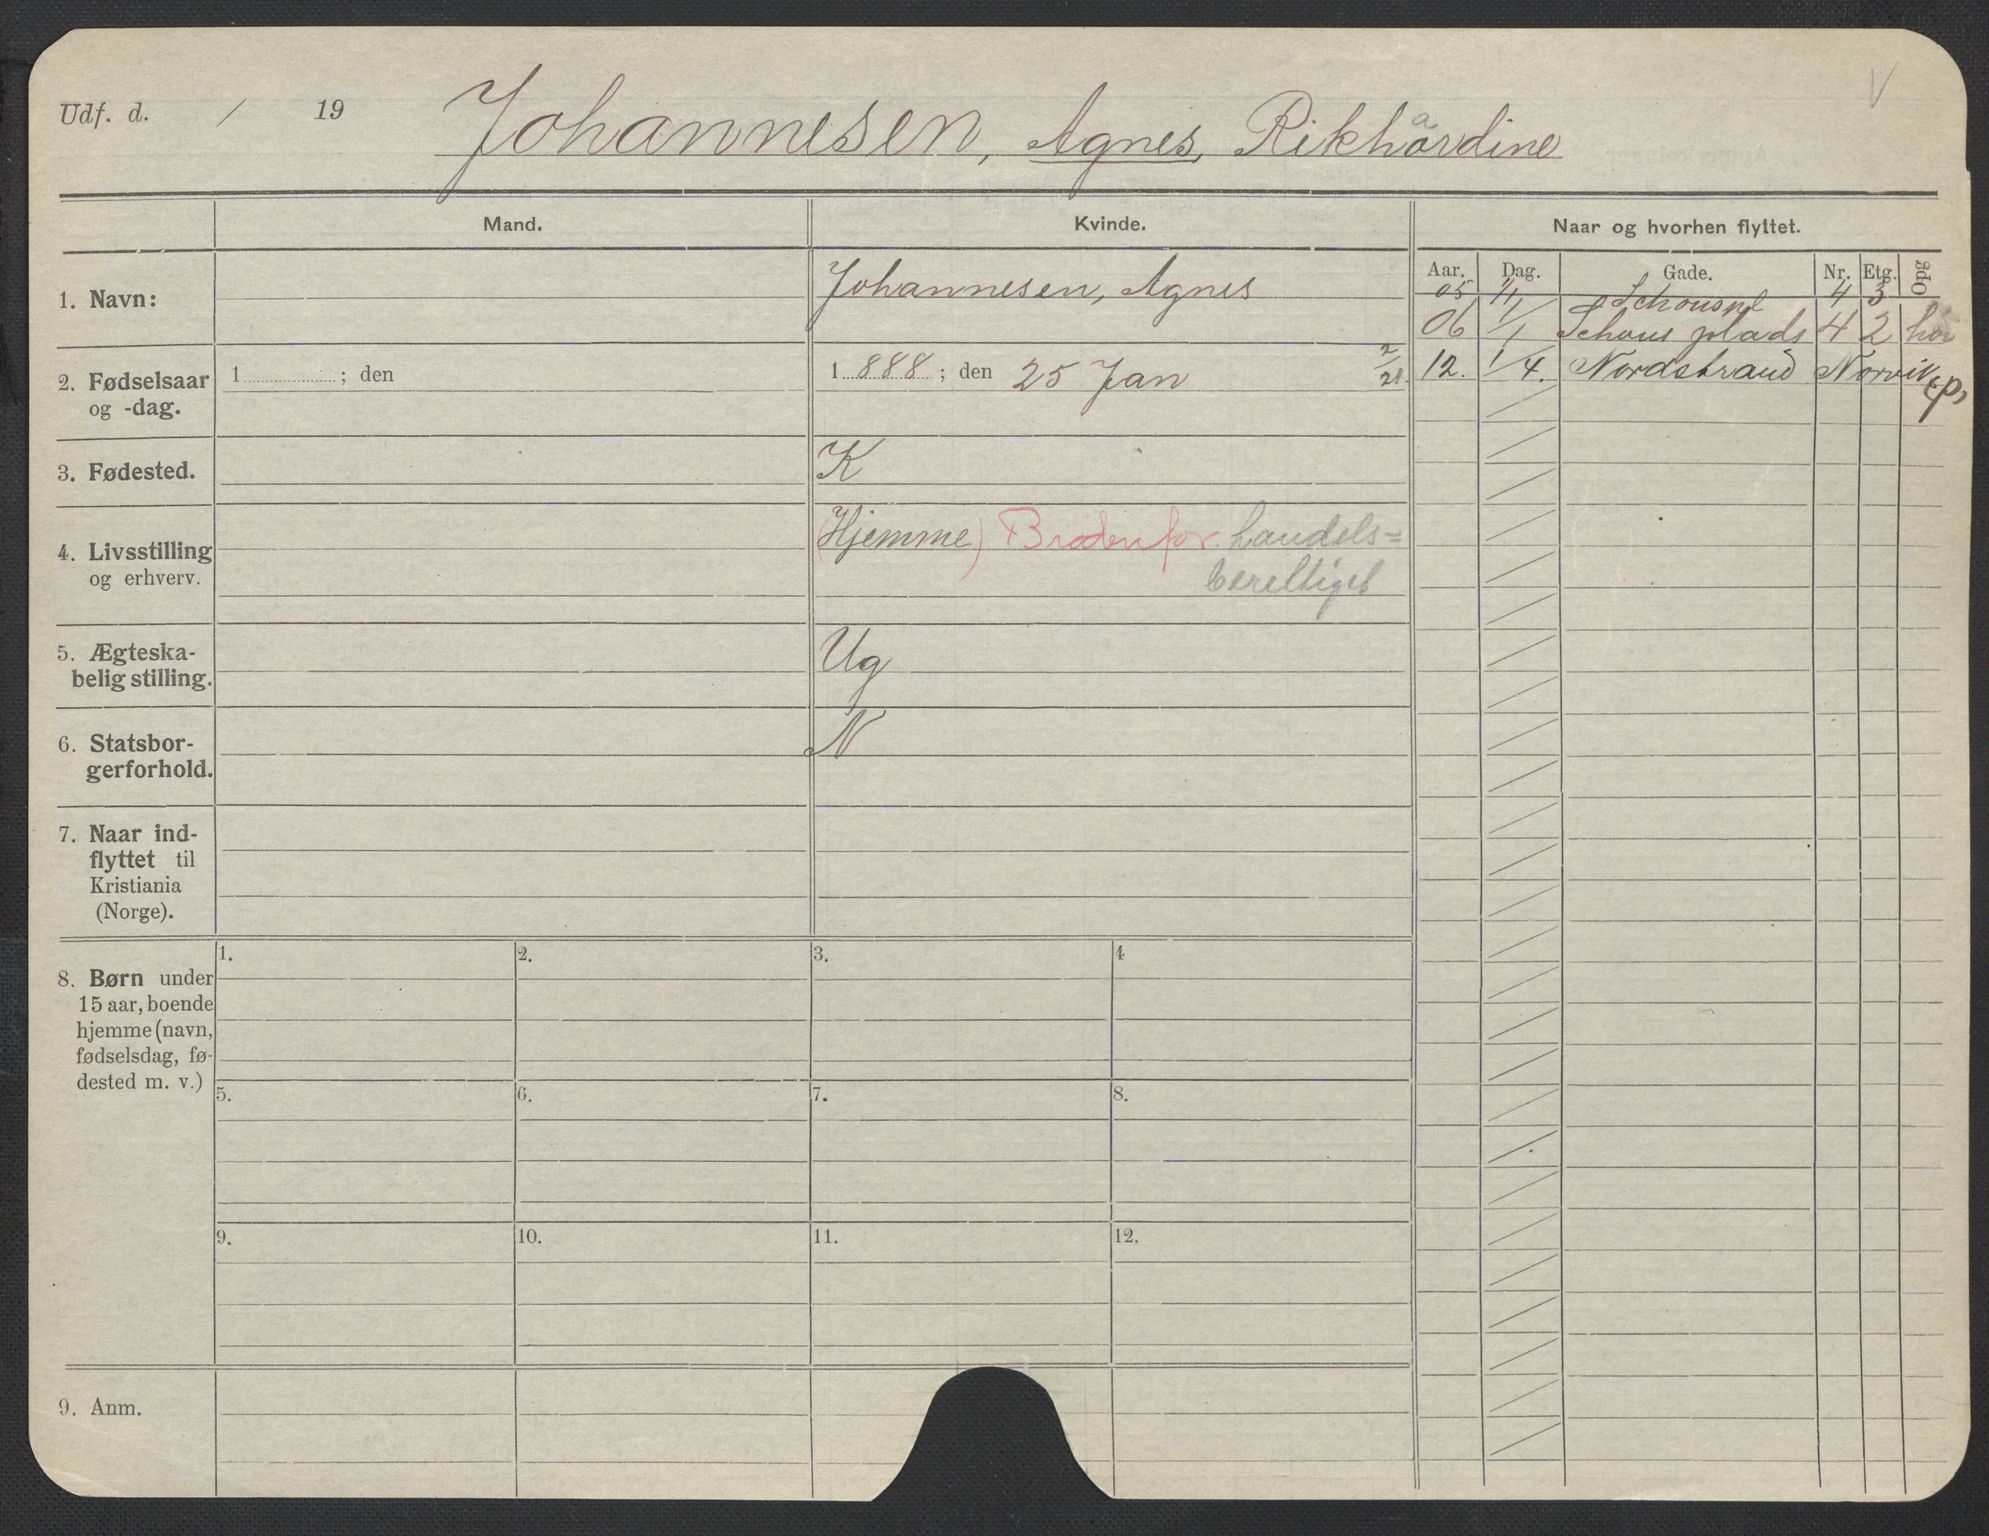 Udf. d. / 19 Johannesen, Agnes, Rikhardine V
Mand. Kvinde. Naar og hvorhen flyttet.
Aar. Dag. Gade. Nr. Etg. Opg
1. Navn: Johannesen, Agnes
05 1/1 Schouspl 4 3
06 1/1 Schous plads 4 2
2. Fødselsaar og -dag. 1 ; den 1 888 ; den 25 Jan 2/21.
12. 1/4. Nordstrand Norvik
3. Fødested. K
4. Livsstilling og erhverv. (Hjemme) Broden for. handels=
berettiget
5. Ægteska-
belig stilling. Ug
6. Statsbor-
gerforhold. N
7. Naar ind-
flyttet til
Kristiania
(Norge).
8. Børn under
15 aar, boende
hjemme (navn,
fødselsdag, fø-
dested m. v.)
1. 2. 3. 4
5. 6. 7. 8.
9. 10. 11. 12.
9. Anm.